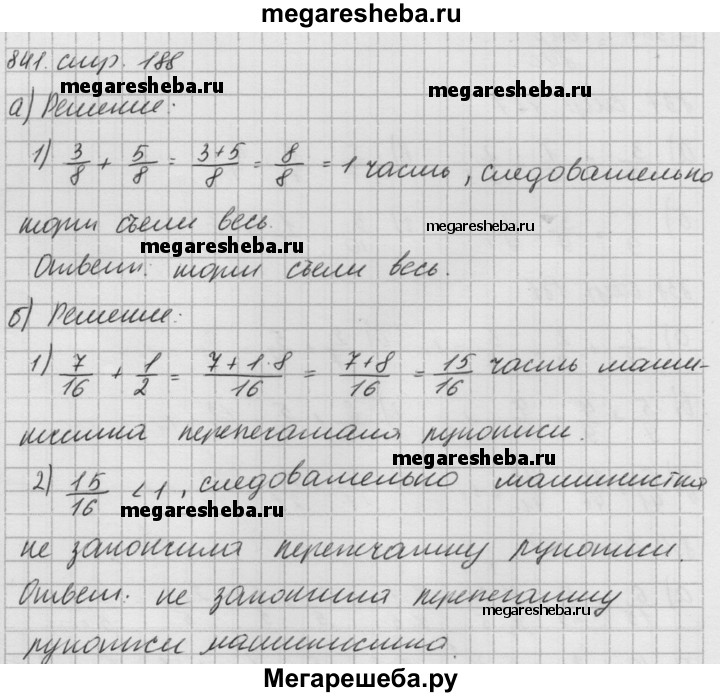 megaresheba.ru
841. стр. 188
megaresheba.ru megaresheba.ru
а) Решение:
1) 3/8 + 5/8 = (3+5)/8 = 8/8 = 1 часть, следовательно
торт съели весь. megaresheba.ru
megaresheba.ru
Ответ: торт съели весь.
б) Решение:
1) 7/16 + 1/2 = (7+1·8)/16 = (7+8)/16 = 15/16 часть маши-
нистка перепечатала рукописи.
megaresheba.ru
2) 15/16 < 1, следовательно машинистка
megaresheba.ru
не закончила перепечатку рукописи.
Ответ: не закончила перепечатку
megaresheba.ru
рукописи машинистка.
Мегарешеба.ру